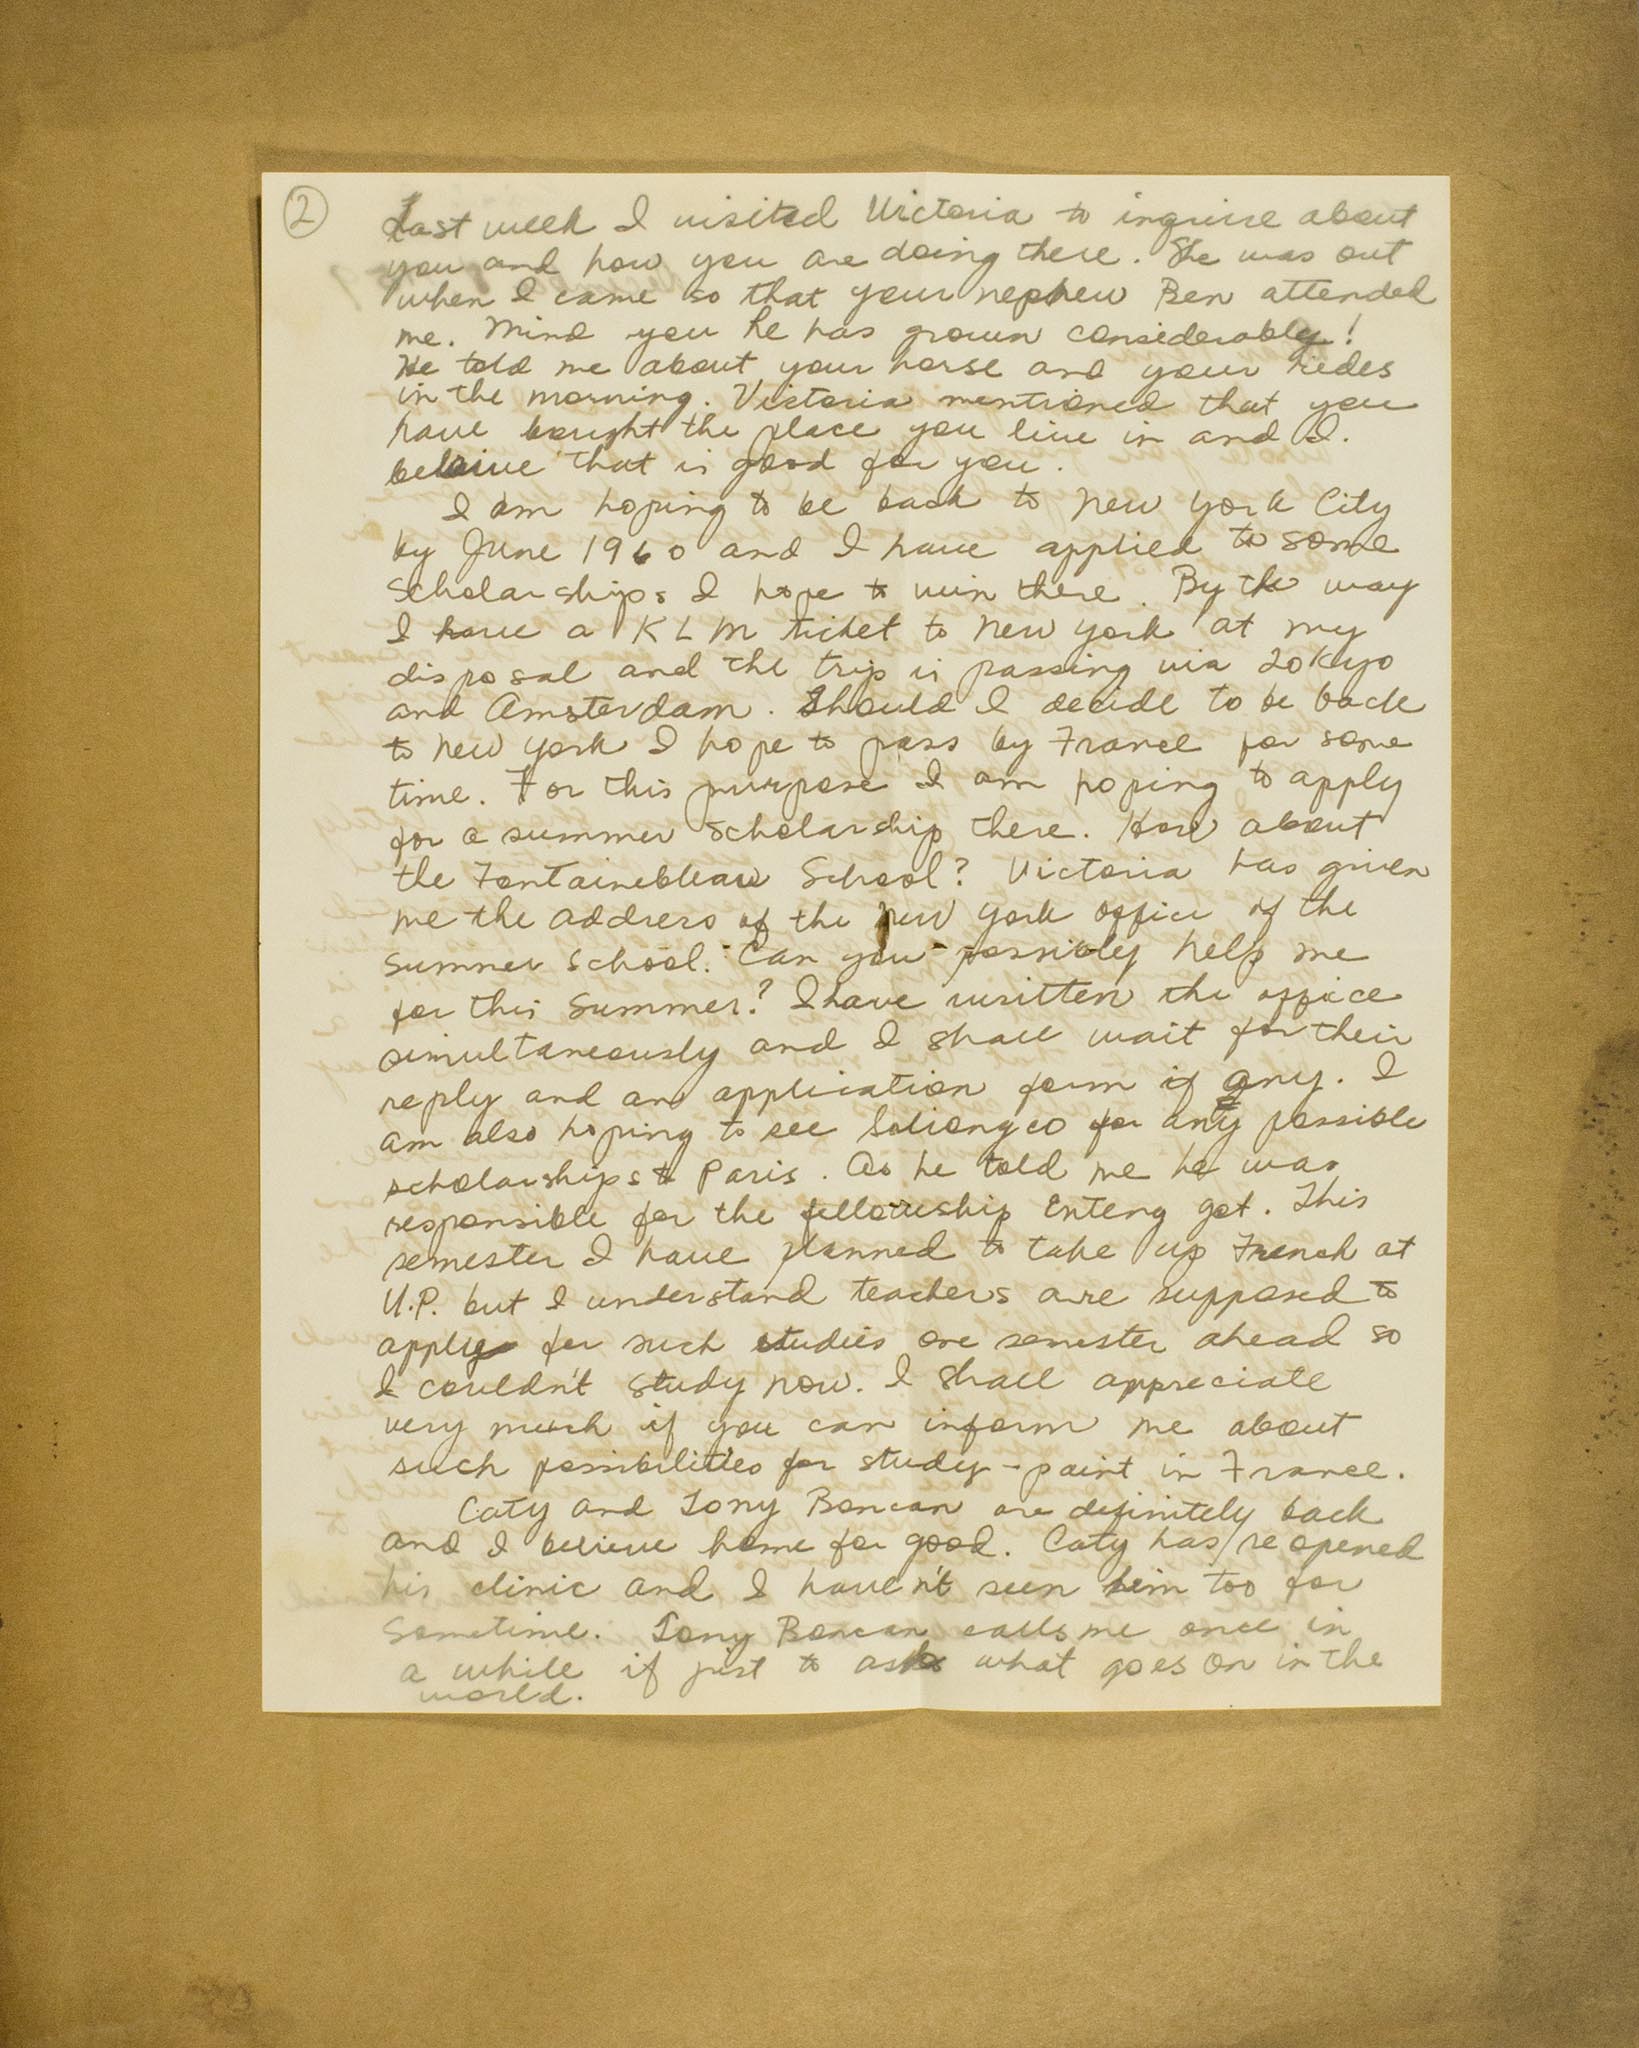 2
Last week I visited Victoria to inquire about
you and how you are doing there. She was out
when I came so that your nephew Ben attended
me. Mind you he has grown considerably!
He told me about your horse and your rides
in the morning. Victoria mentioned that you
have bought the place you live in and I
believe that is good for you.
I am hoping to be back to New York City
by June 1960 and I have applied to some
scholarships I hope to win there. By the way
I have a KLM ticket to New York at my
disposal and the trip is passing via Tokyo
and Amsterdam. Should I decide to be back
to New York I hope to pass by France for some
time. For this purpose I am hoping to apply
for a summer scholarship there. How about
the Fontainebleau School? Victoria has given
me the address of the New York office of the
summer school. Can you possibly help me
for this summer? I have written the office
simultaneously and I shall wait for their
reply and an application form if any. I
am also hoping to see Soliongco for any possible
scholarships to Paris. As he told me he was
responsible for the fellowship Enteng got. This
semester I have planned to take up French at
U.P. but I understand teachers are supposed to
apply for such studies one semester ahead so
I couldn't study now. I shall appreciate
very much if you can inform me about
such possibilities for study-paint in France.
Caty and Tony Boncan are definitely back
and I believe home for good. Caty has reopened
his clinic and I haven't seen him too for
sometime. Tony Boncan calls me once in
a while if just to ask what goes on in the
world.